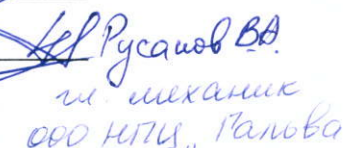 Русанов В.А.
гл. механик
ООО НПЦ „Гальва